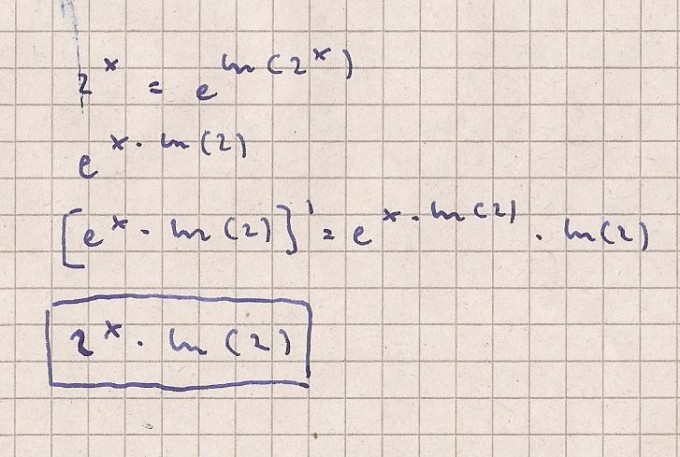 2^x = e^ln(2^x)
e^x · ln(2)
[e^x · ln(2)]' = e^x · ln(2) · ln(2)
2^x · ln(2)